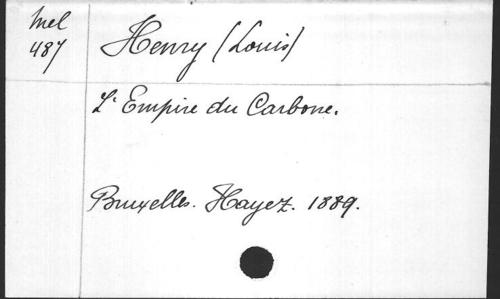 Mel
487
Henry (Louis)
L'Empire du Carbone.
Bruxelles. Hayez. 1889.